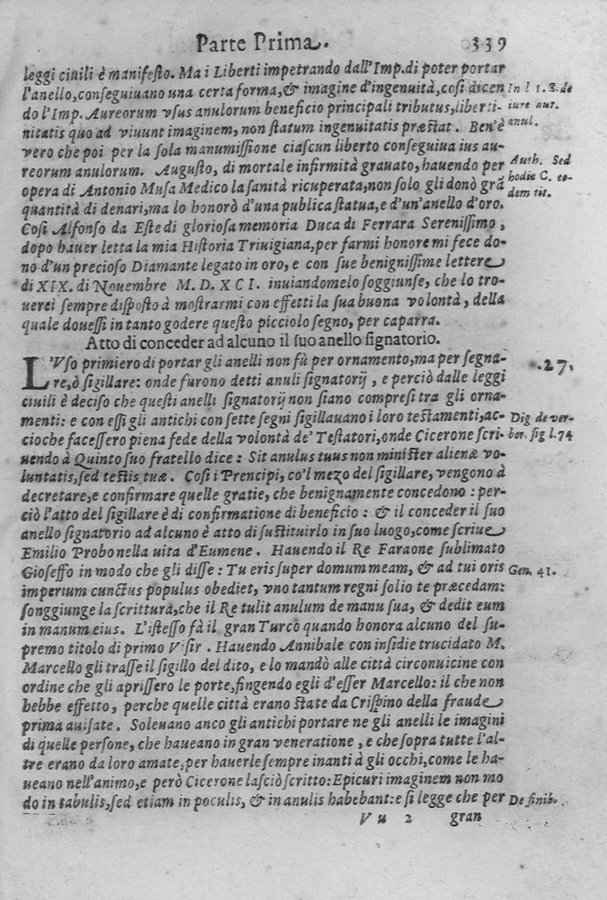 Parte Prima. 339
leggi ciuili è manifesto. Ma i Liberti impetrando dall'Imp. di poter portar
l'anello, conseguiuano una certa forma, & imagine d'ingenuità, così dicen
In l 1. 3. de
do l'Imp. Aureorum vsus anulorum beneficio principali tributus, liberti-
iure aur.
nitatis quo ad viuunt imaginem, non statum ingenuitatis præstat. Ben'è
anul.
vero che poi per la sola manumissione ciascun liberto conseguiua ius au-
reorum anulorum. Augusto, di mortale infirmità grauato, hauendo per
Auth. Sed
opera di Antonio Musa Medico la sanità ricuperata, non solo gli donò grā
hodie C. eo-
quantità di denari, ma lo honorò d'una publica statua, e d'un'anello d'oro.
dem tit.
Così Alfonso da Este di gloriosa memoria Duca di Ferrara Serenissimo,
dopo hauer letta la mia Historia Triuigiana, per farmi honore mi fece do-
no d'un precioso Diamante legato in oro, e con sue benignissime lettere
di XIX. di Nouembre M. D. XCI. inuiandomelo soggiunse, che lo tro-
uerei sempre disposto à mostrarmi con effetti la sua buona volontà, della
quale douessi in tanto godere questo picciolo segno, per caparra.
Atto di conceder ad alcuno il suo anello signatorio.
L'Vso primiero di portar gli anelli non fù per ornamento, ma per segna-
.27.
re, ò sigillare: onde furono detti anuli signatorij, e perciò dalle leggi
ciuili è deciso che questi anelli signatorij non siano compresi tra gli orna-
menti: e con essi gli antichi con sette segni sigillauano i loro testamenti, ac-
Dig. de ver-
cioche facessero piena fede della volontà de' Testatori, onde Cicerone scri-
bor. sig l. 74
uendo à Quinto suo fratello dice: Sit anulus tuus non minister alienæ vo-
luntatis, sed testis tuæ. Così i Prencipi, co'l mezo del sigillare, vengono à
decretare, e confirmare quelle gratie, che benignamente concedono: per-
ciò l'atto del sigillare è di confirmatione di beneficio: & il conceder il suo
anello signatorio ad alcuno è atto di sustituirlo in suo luogo, come scriue
Emilio Probo nella uita d'Eumene. Hauendo il Re Faraone sublimato
Gioseffo in modo che gli disse: Tu eris super domum meam, & ad tui oris
Gen. 41.
imperium cunctus populus obediet, vno tantum regni solio te præcedam:
songgiunge la scrittura, che il Re tulit anulum de manu sua, & dedit eum
in manum eius. L'istesso fà il gran Turco quando honora alcuno del su-
premo titolo di primo Visir. Hauendo Annibale con insidie trucidato M.
Marcello gli trasse il sigillo del dito, e lo mandò alle città circonuicine con
ordine che gli aprissero le porte, fingendo egli d'esser Marcello: il che non
hebbe effetto, perche quelle città erano state da Crispino della fraude
prima auisate. Soleuano anco gli antichi portare ne gli anelli le imagini
di quelle persone, che haueano in gran veneratione, e che sopra tutte l'al-
tre erano da loro amate, per hauerle sempre inanti à gli occhi, come le ha-
ueano nell'animo, e però Cicerone lasciò scritto: Epicuri imaginem non mo
do in tabulis, sed etiam in poculis, & in anulis habebant: e si legge che per
De finib.
V u 2 gran